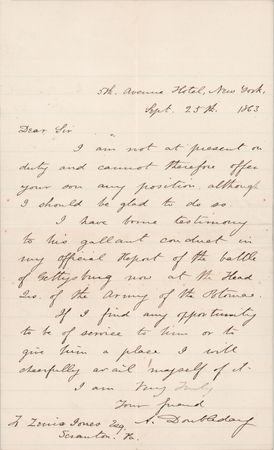 5th. Avenue Hotel, New York.
Sept. 25th. 1863
Dear Sir
I am not at present on
duty and cannot therefore offer
your son any position, although
I should be glad to do so
I have borne testimony
to his gallant conduct in
my official Report of the battle
of Gettysburg now at the Head
Qrs. of the Army of the Potomac.
If I find any opportunity
to be of service to him or to
give him a place I will
cheerfully avail myself of it.
I am Very Truly
Your friend
A. Doubleday
Jones Esq
Scranton, Pa.